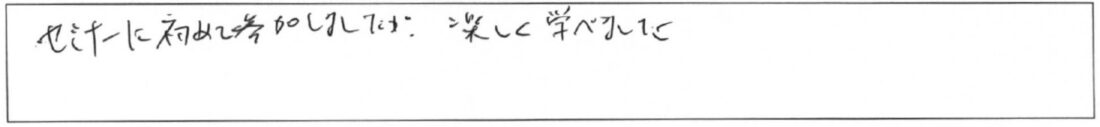 セミナーに初めて参加しましたが、楽しく学べました